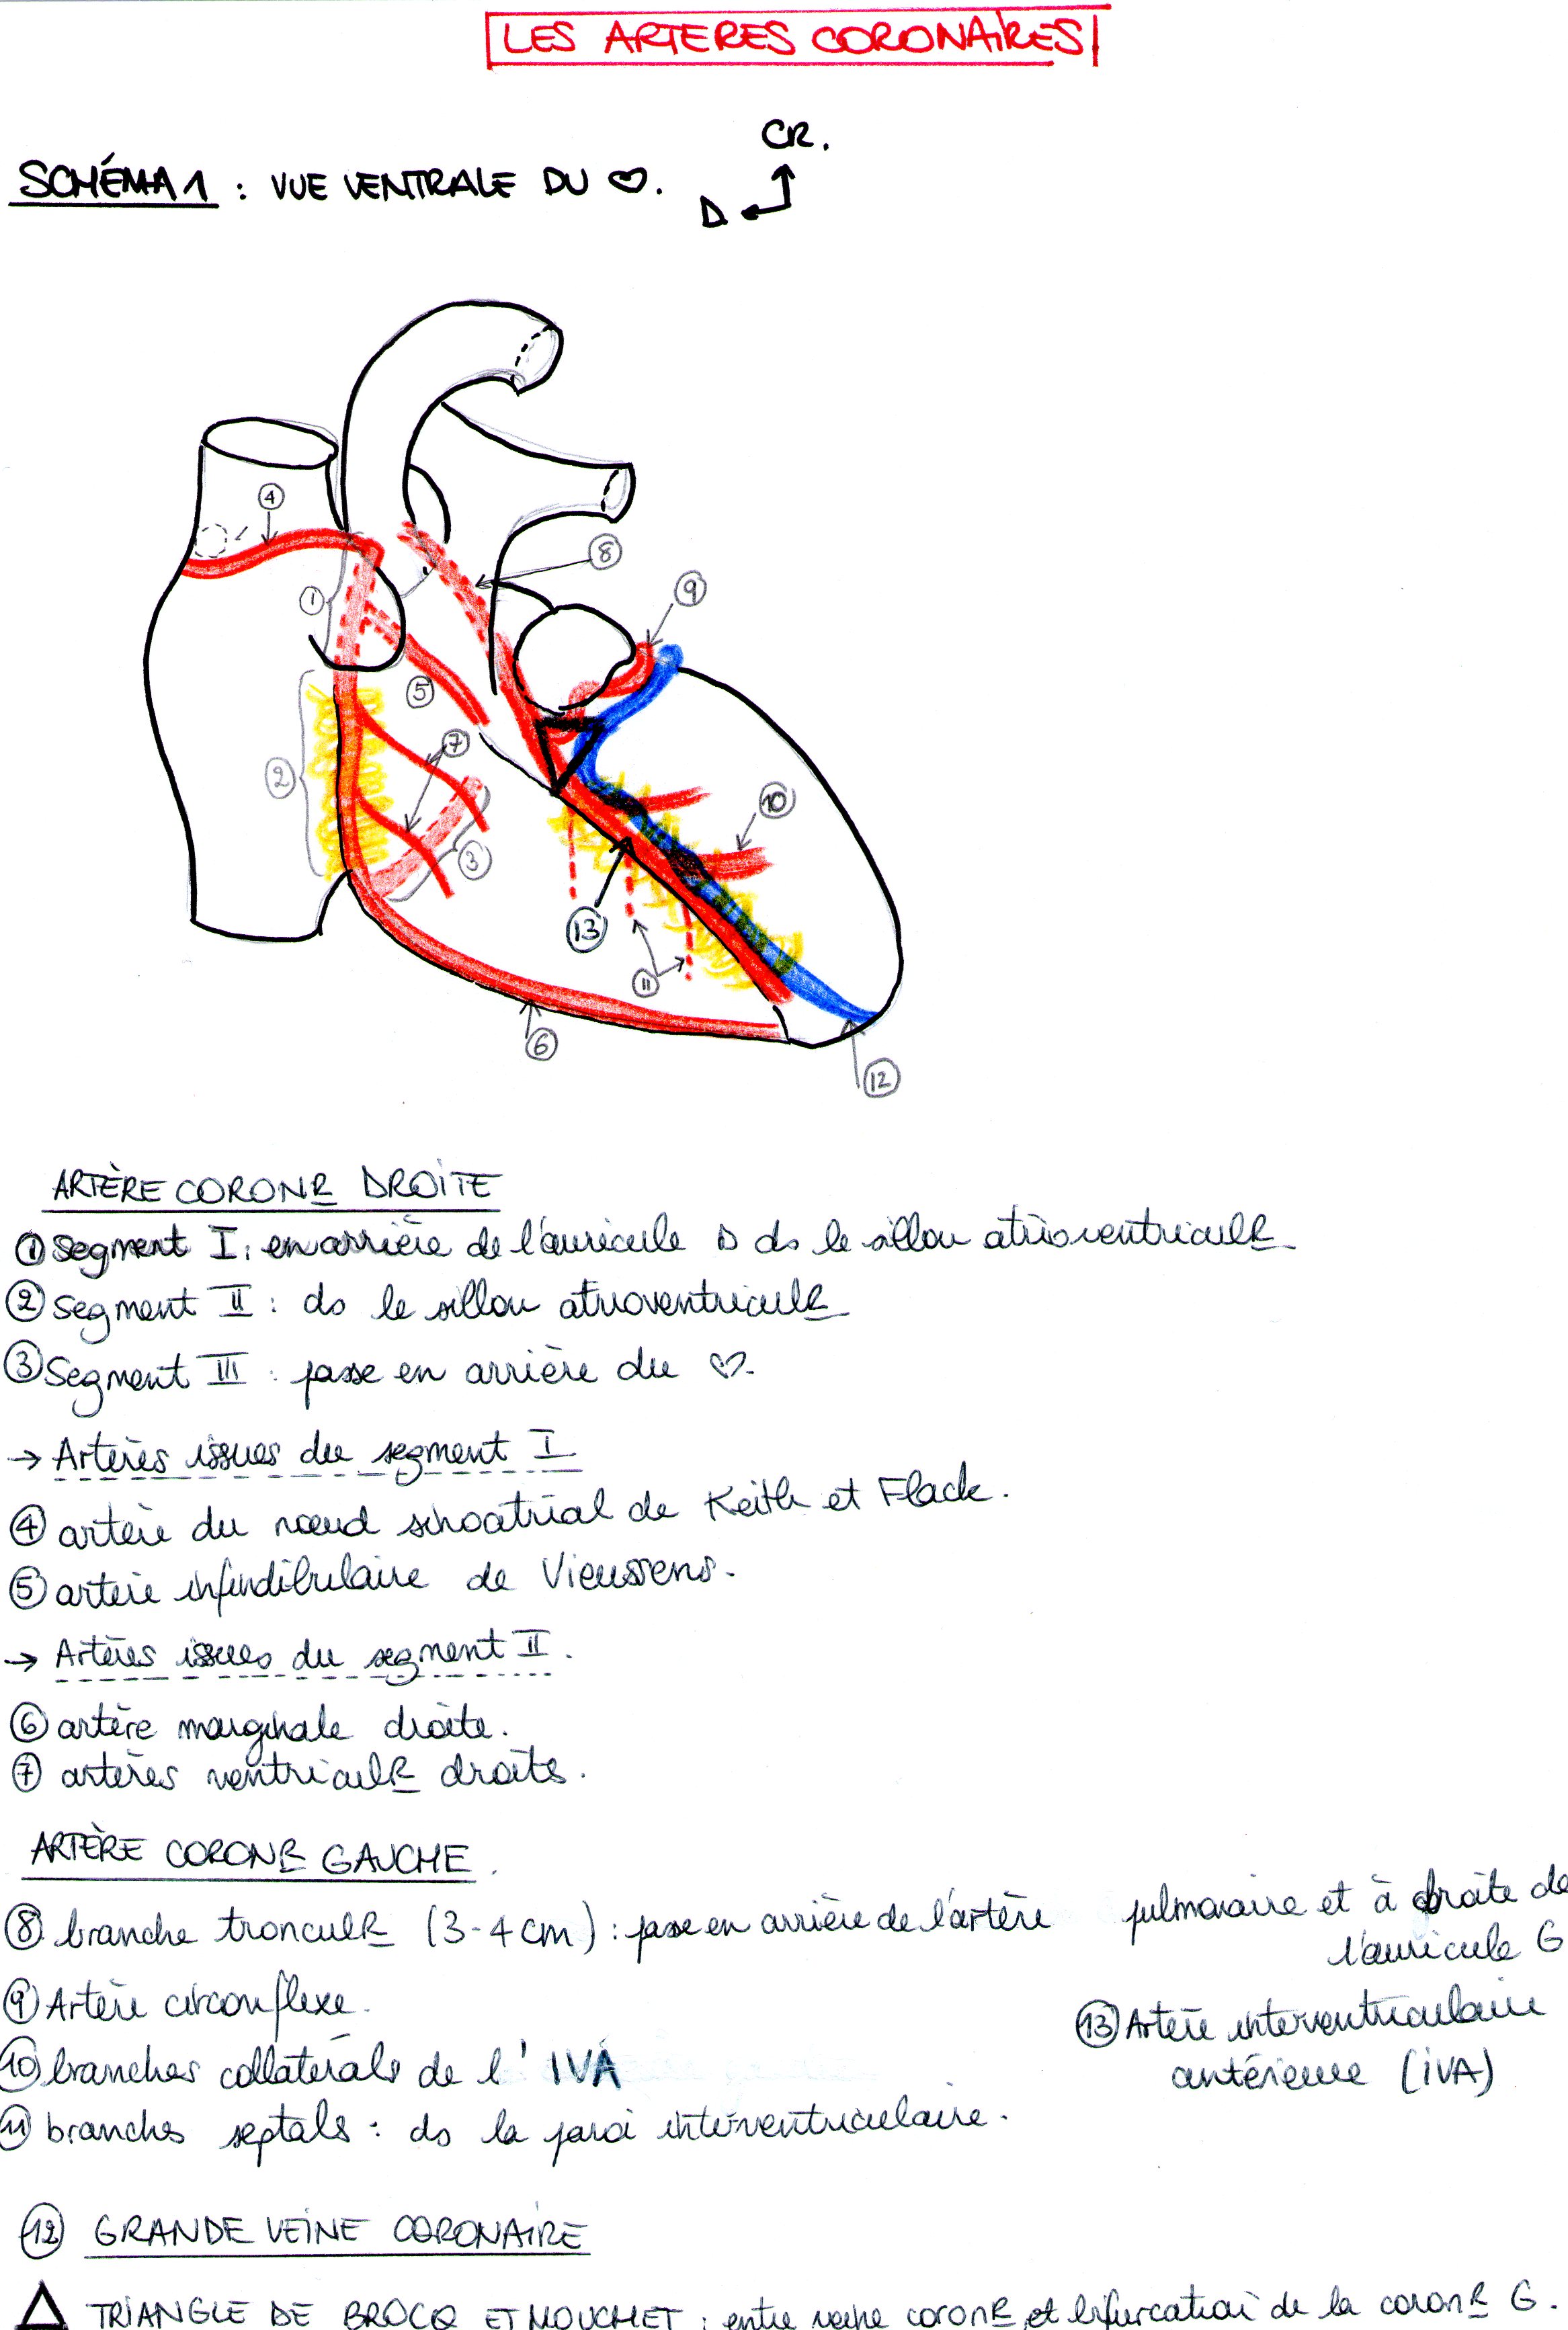 LES ARTERES CORONAIRES
CR.
SCHÉMA 1 : VUE VENTRALE DU ♡.
D
4
8
9
1
5
7
2
10
3
13
11
6
12
ARTÈRE CORONR DROITE
① Segment I : en arrière de l'auricule D ds le sillon atrioventriculR
② Segment II : ds le sillon atrioventriculR
③ Segment III : passe en arrière du ♡.
→ Artères issues du segment I
④ artère du nœud sinoatrial de Keith et Flack.
⑤ artère infundibulaire de Vieussens.
→ Artères issues du segment II.
⑥ artère marginale droite.
⑦ artères ventriculR droits.
ARTÈRE CORONR GAUCHE.
⑧ branche tronculR (3-4 cm) : passe en arrière de l'artère pulmonaire et à droite de
l'auricule G
⑨ Artère circonflexe.
⑬ Artère interventriculaire
antérieure (IVA)
⑩ branches collatérals de l'IVA
⑪ branches septals : ds la paroi interventriculaire.
⑫ GRANDE VEINE CORONAIRE
△ TRIANGLE DE BROCQ ET MOUCHET : entre veine coronR et bifurcation de la coronR G.